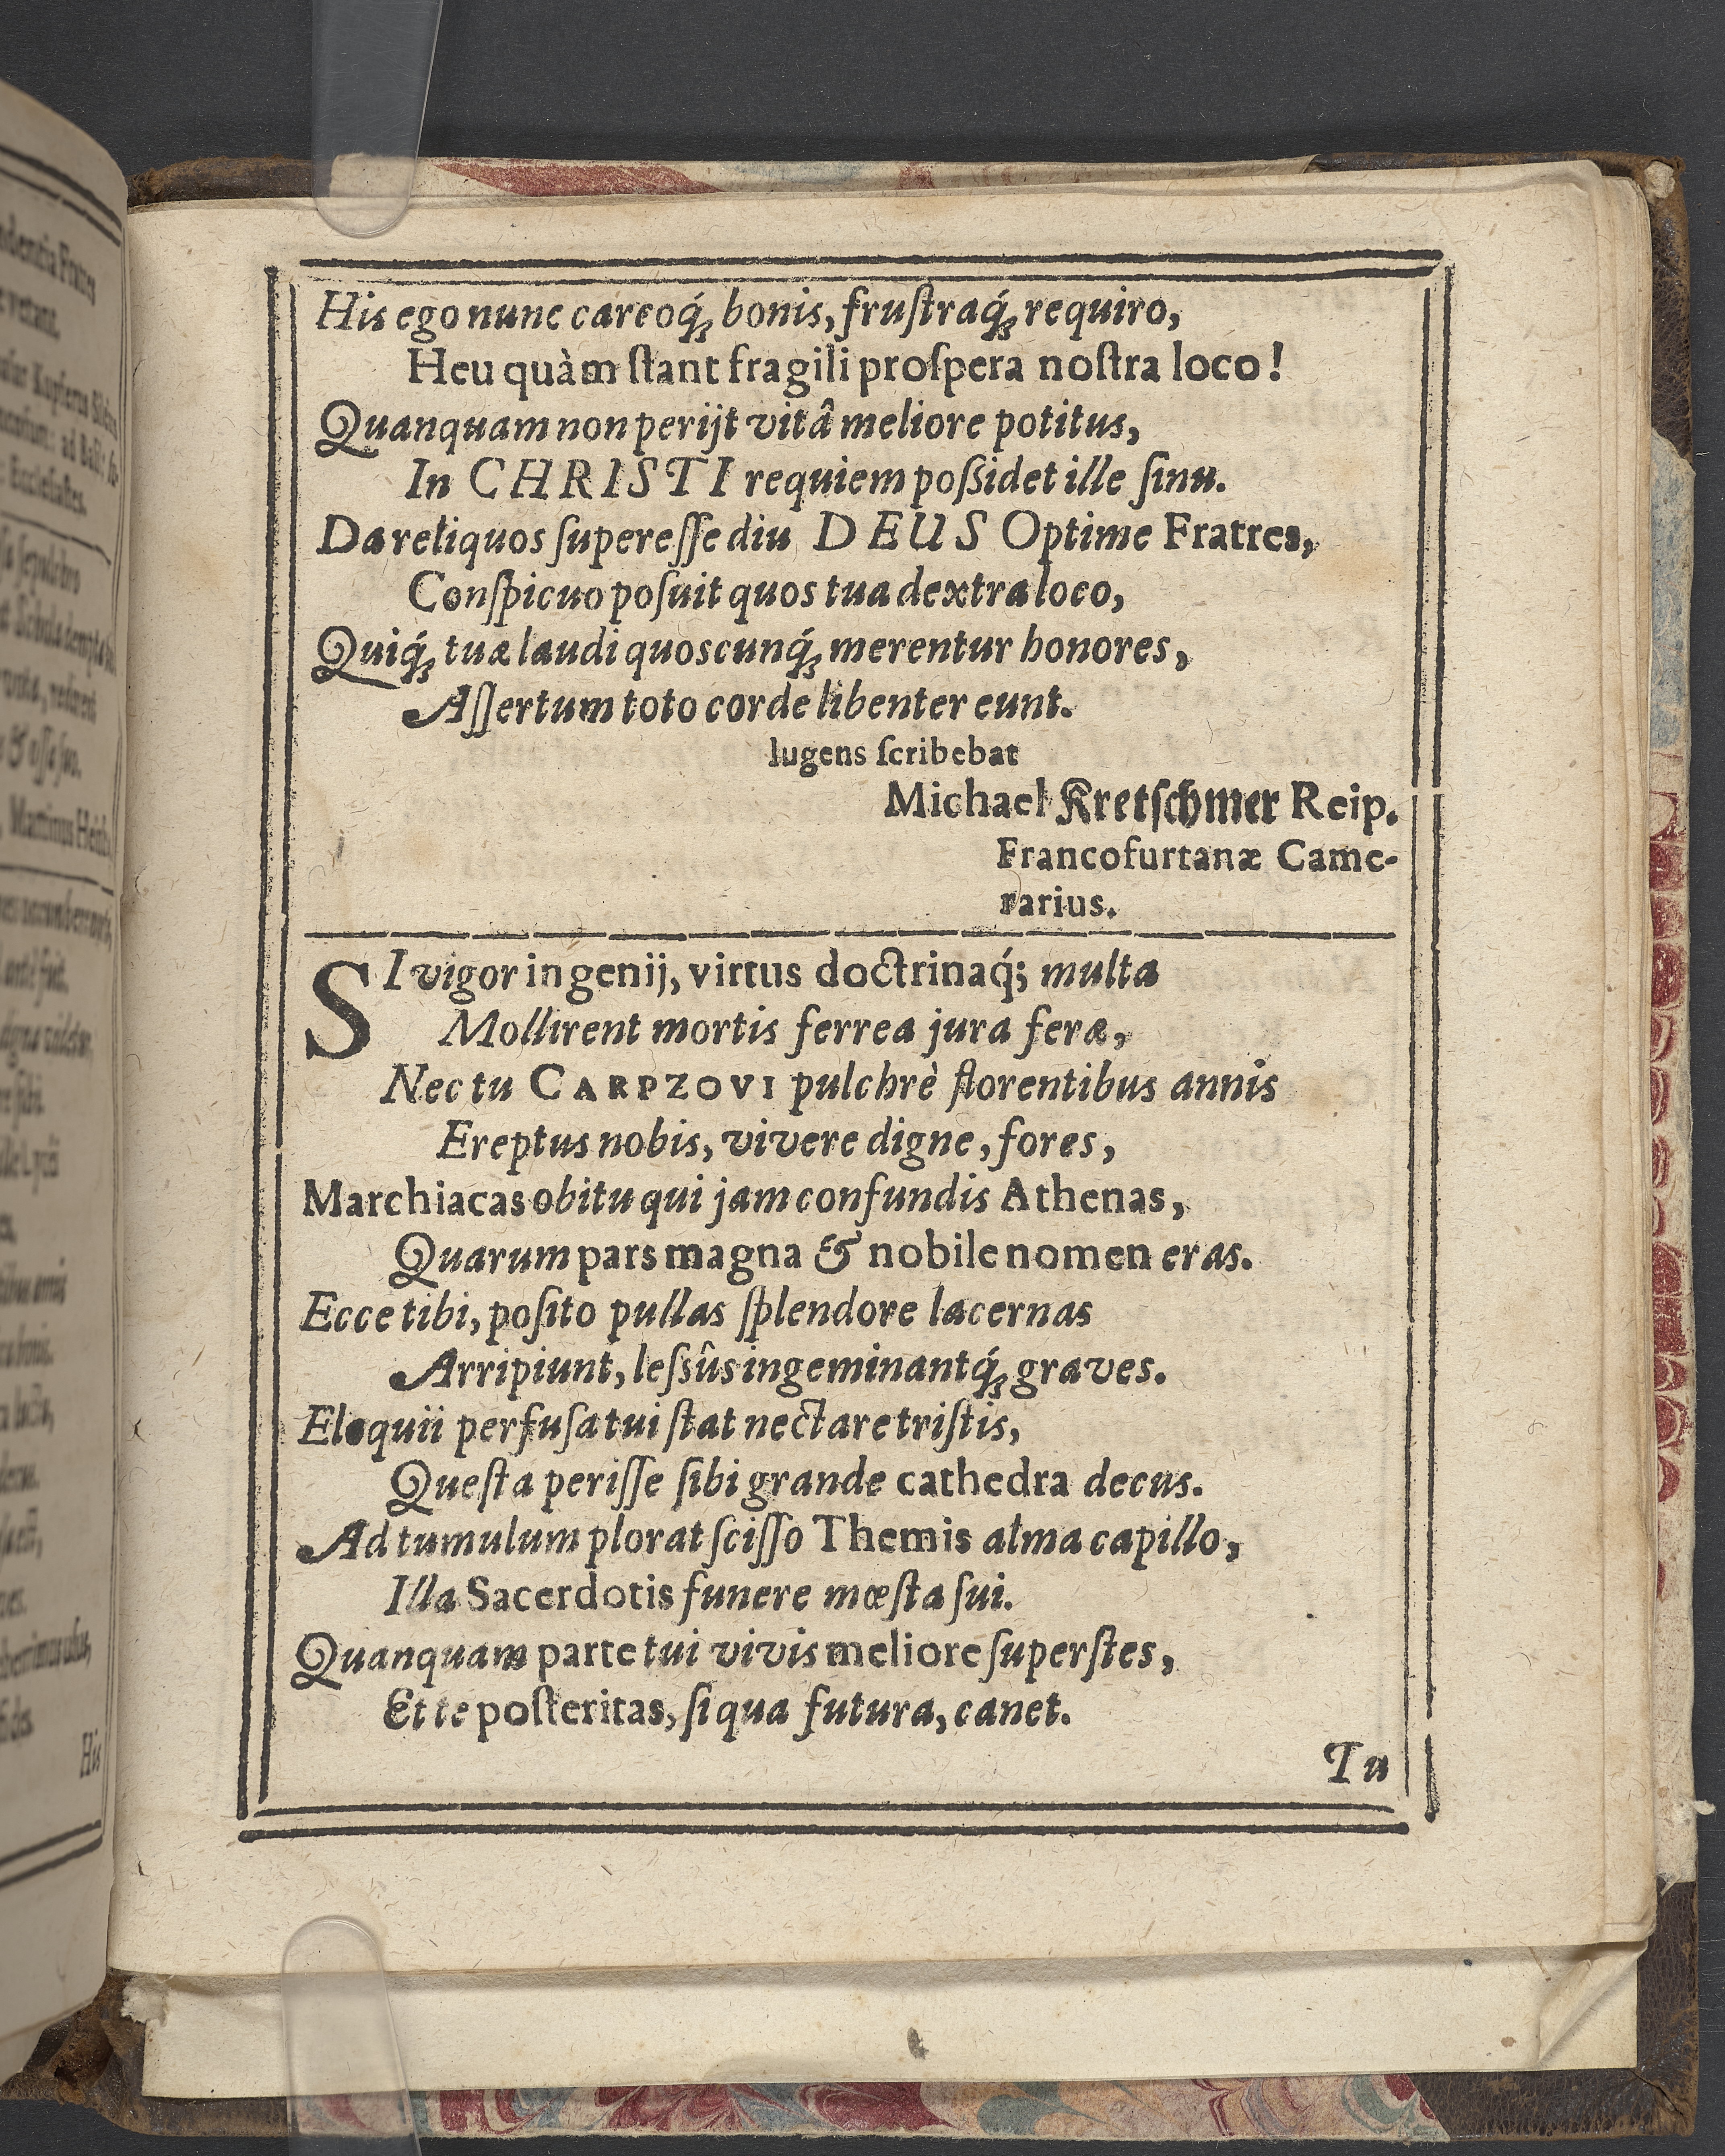 His ego nunc careoq́ꝫ bonis, fruſtraq́ꝫ requiro,
Heu quàm ſtant fragili proſpera noſtra loco!
Quanquam non perijt vitâ meliore potitus,
In CHRISTI requiem poſsidet ille ſinu.
Da reliquos ſupereſſe diu DEUS Optime Fratres,
Conſpicuo poſuit quos tua dextra loco,
Quiq́ꝫ tuæ laudi quoscunq́ꝫ merentur honores,
Aſſertum toto corde libenter eunt.
lugens ſcribebat
Michael Kretſchmer Reip.
Francofurtanæ Came-
rarius.
SI vigor ingenij, virtus doctrinaq́; multa
Mollirent mortis ferrea jura feræ,
Nec tu CARPZOVI pulchrè florentibus annis
Ereptus nobis, vivere digne, fores,
Marchiacas obitu qui jam confundis Athenas,
Quarum pars magna & nobile nomen eras.
Ecce tibi, poſito pullas ſplendore lacernas
Arripiunt, leſsûs ingeminantq́ꝫ graves.
Eloquii perfuſa tui ſtat nectare triſtis,
Queſta periſſe ſibi grande cathedra decus.
Ad tumulum plorat ſciſſo Themis alma capillo,
Illa Sacerdotis funere mœſta ſui.
Quanquam parte tui vivis meliore ſuperſtes,
Et te poſteritas, ſi qua futura, canet.
Tu
His